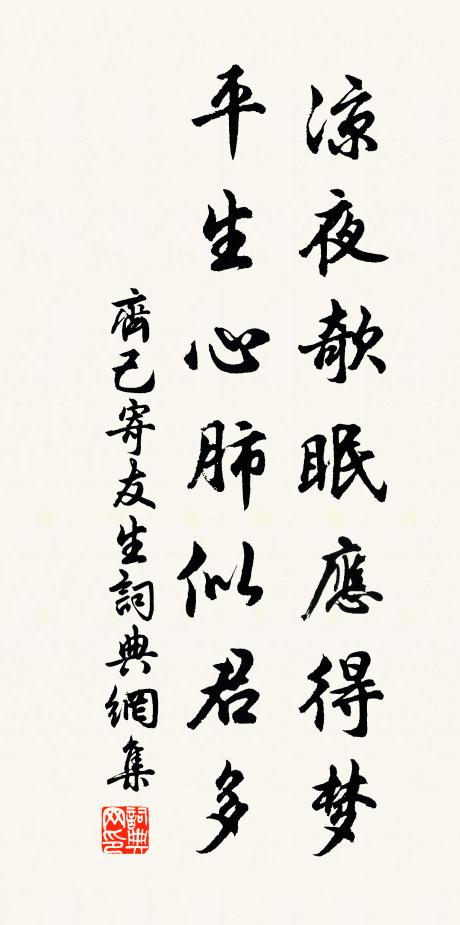 涼夜欹眠應得梦
平生心肺似君多
齊己寄友生詞典網集
詞典网印